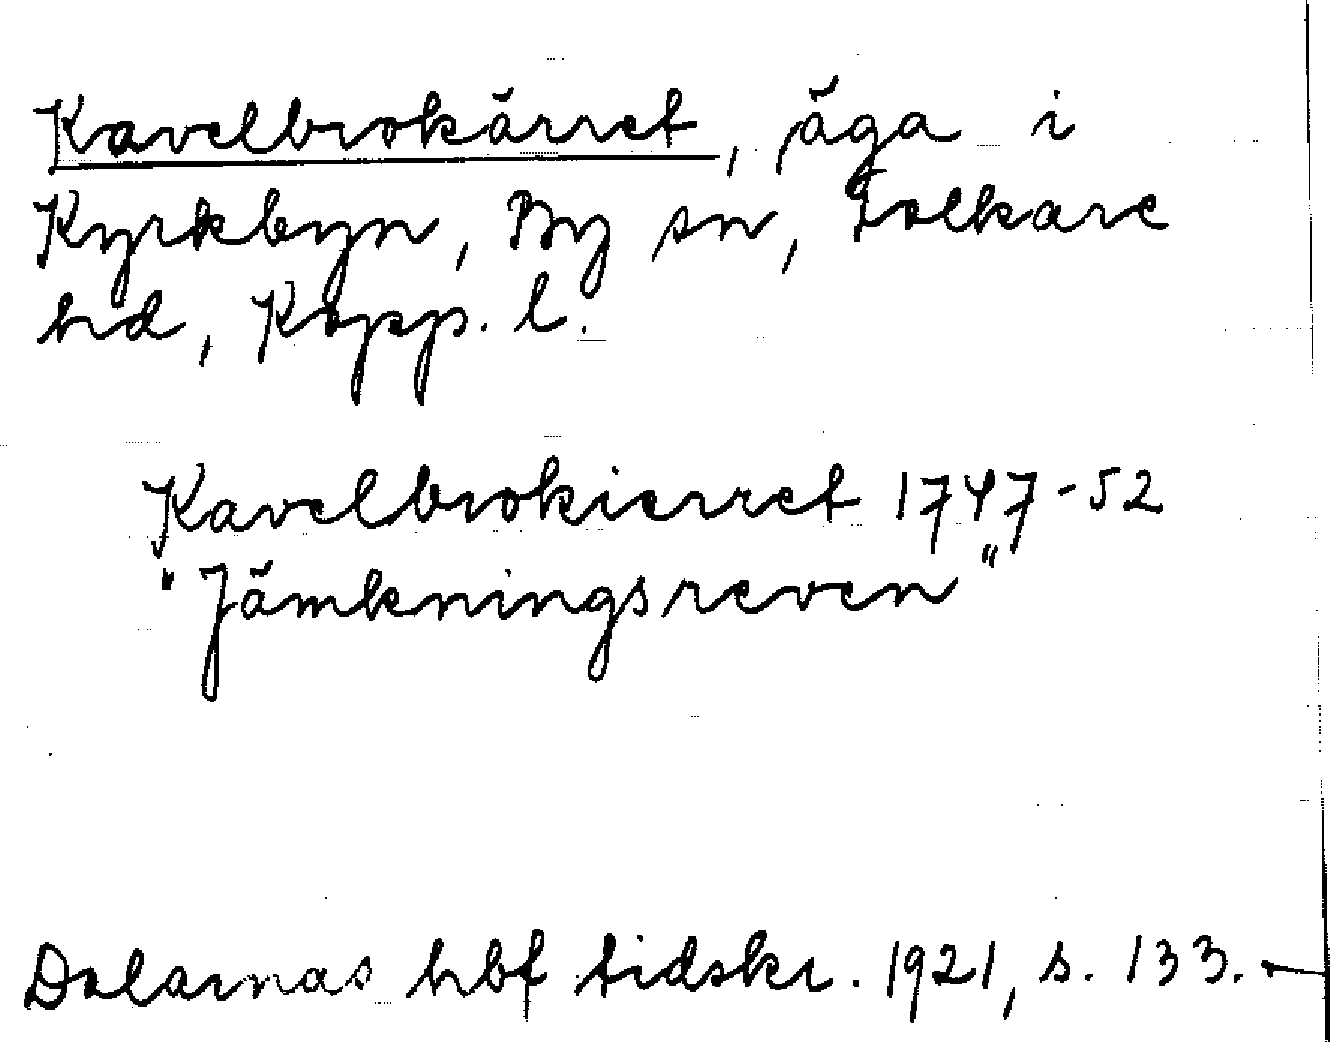 Kavelbrokärret, äga i
Kyrkbyn, By sn, Folkare
hd, Kopp. l.
Kavelbrokierret 1747-52
"Jämkningsreven"
Dalarnas hbf tidskr. 1921, s. 133.